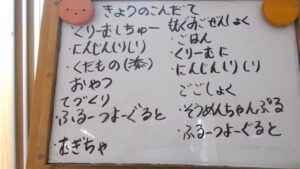 きょうのこんだて
・くりーむしちゅー
・にんじんしりしり
・くだもの(
おやつ
てづくり
・ふるーつよーぐると
・むぎちゃ
もぐもぐごぜんしょく
・ごはん
・くりーむに
・にんじんしりしり
ごごしょく
・そうめんちゃんぷる
・ふるーつよーぐると